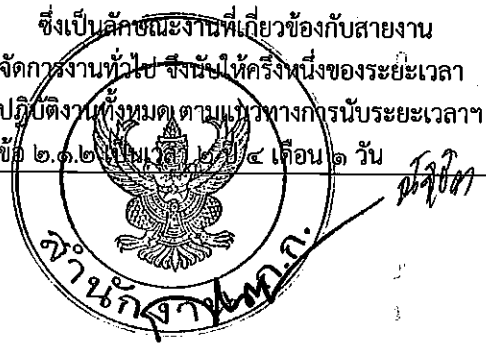 ซึ่งเป็นลักษณะงานที่เกี่ยวข้องกับสายงาน
จัดการงานทั่วไป จึงนับให้ครึ่งหนึ่งของระยะเวลา
ปฏิบัติงานทั้งหมด ตามแนวทางการนับระยะเวลาฯ
ข้อ ๒.๑.๒ เป็นเวลา ๒ ปี ๔ เดือน ๑ วัน
สำนักงาน ก.ก.